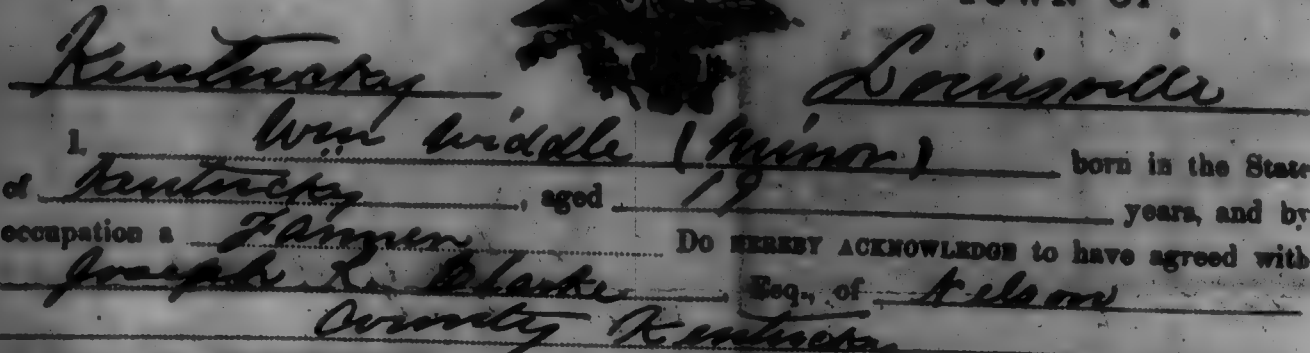 TOWN OF
Kentucky Louisville
I, Wm Widdle (Minor) born in the State
of Kentucky, aged 19 years, and by
occupation a Farmer Do HEREBY ACKNOWLEDGE to have agreed with
Joseph R. Clarke Esq., of Nelson
County Kentucky